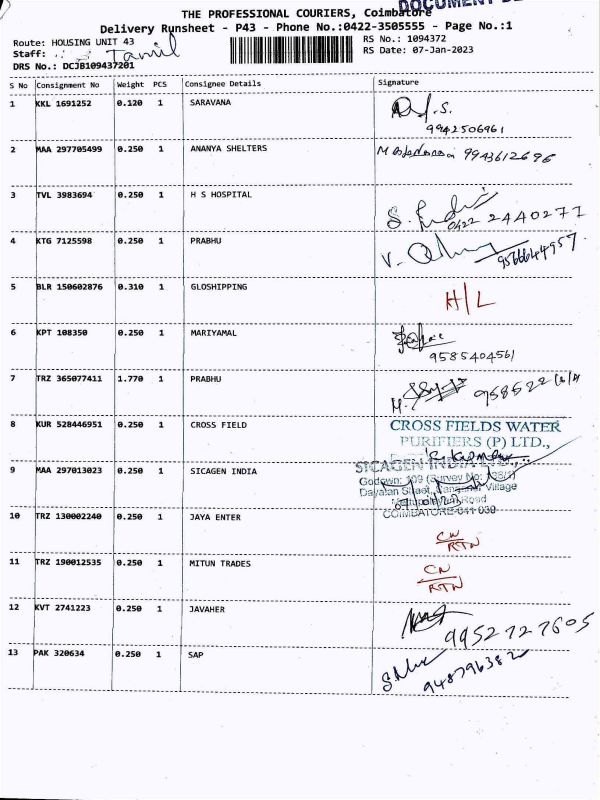 THE PROFESSIONAL COURIERS, Coimbatore
DOCUMENT
Delivery Runsheet - P43 - Phone No.:0422-3505555 - Page No.:1
Route: HOUSING UNIT 43 RS No.: 1094372
Staff: Tamil RS Date: 07-Jan-2023
DRS No.: DCJB109437201
S No Consignment No Weight PCS Consignee Details Signature
1 KKL 1691252 0.120 1 SARAVANA
9942506961
2 MAA 297705499 0.250 1 ANANYA SHELTERS 9943612696
3 TVL 3983694 0.250 1 H S HOSPITAL
0422 2440277
4 KTG 7125598 0.250 1 PRABHU 9566644957
5 BLR 150602876 0.310 1 GLOSHIPPING H/L
6 KPT 108350 0.250 1 MARIYAMAL
9585404561
7 TRZ 365077411 1.770 1 PRABHU
8 KUR 528446951 0.250 1 CROSS FIELD CROSS FIELDS WATER
PURIFIERS (P) LTD.,
9 MAA 297013023 0.250 1 SICAGEN INDIA SICAGEN INDIA
Godown: 109 (Survey No:
Village
Road
COIMBATORE-641 030
10 TRZ 130002240 0.250 1 JAYA ENTER CN
RTN
11 TRZ 190012535 0.250 1 MITUN TRADES CN
RTN
12 KVT 2741223 0.250 1 JAVAHER 9952727605
13 PAK 320634 0.250 1 SAP